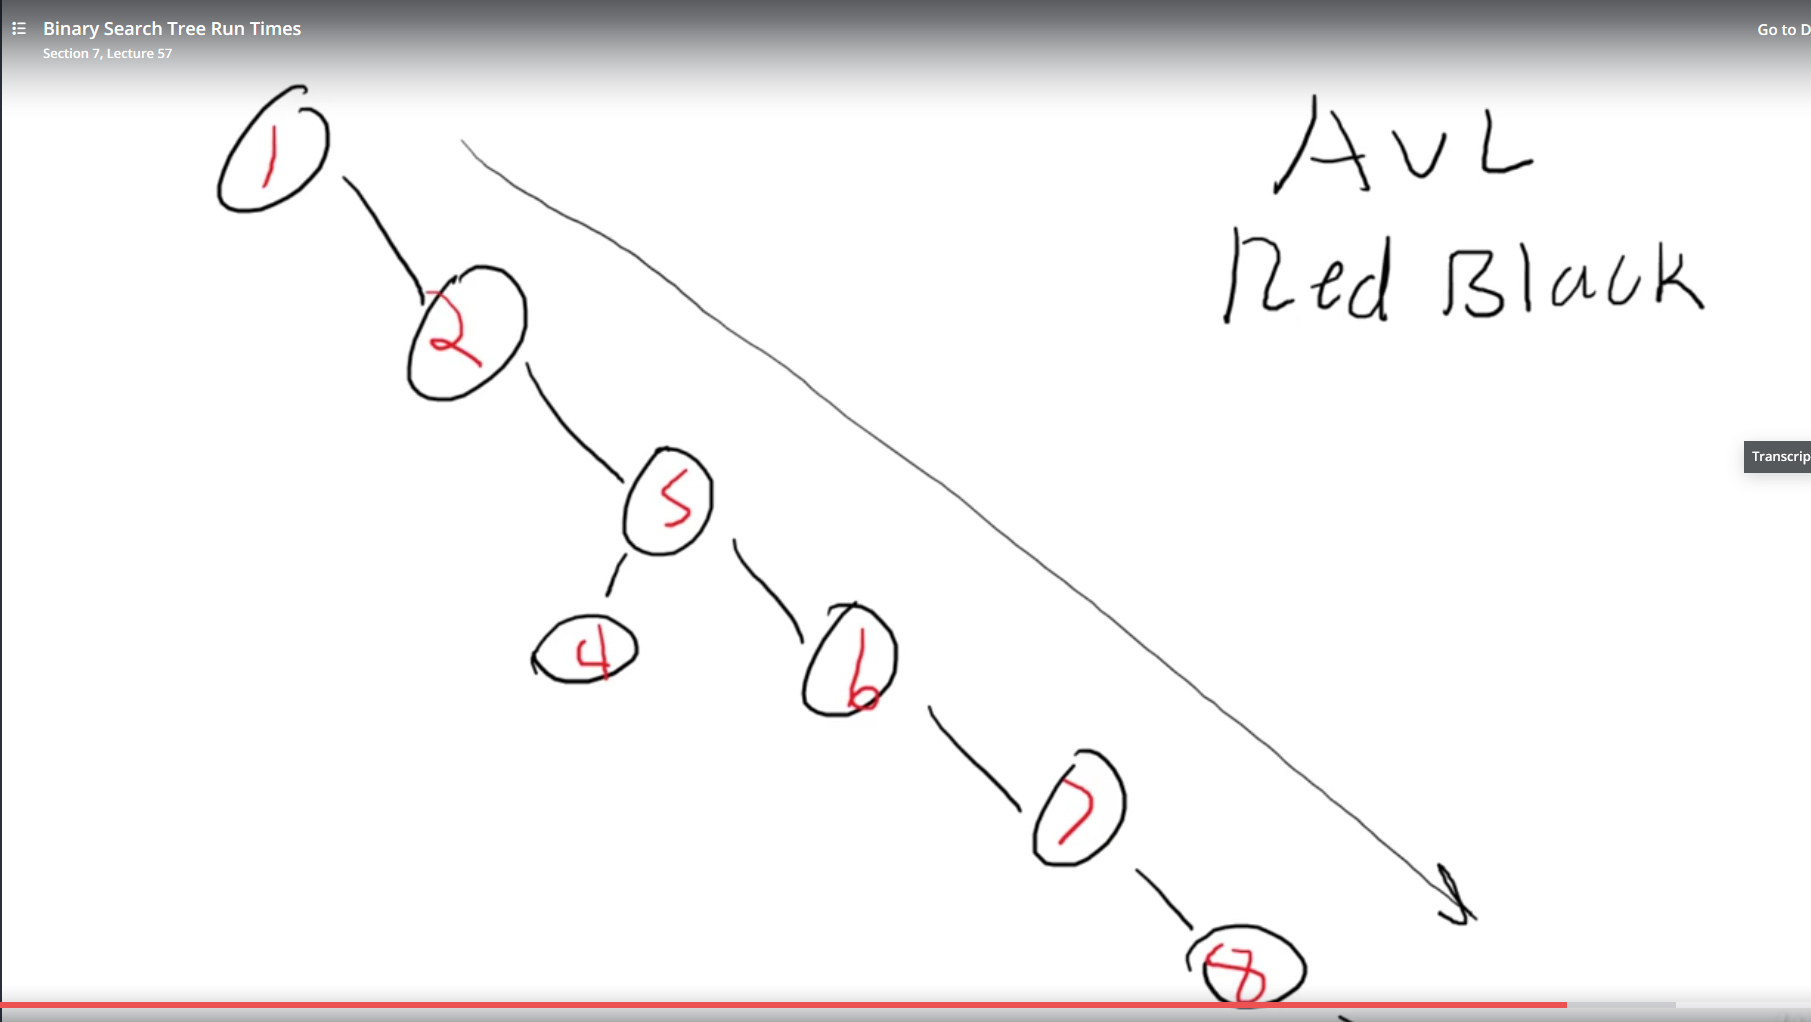 Binary Search Tree Run Times
Go to D
Section 7, Lecture 57
AVL
Red Black
Transcrip
1
2
5
4
6
7
8